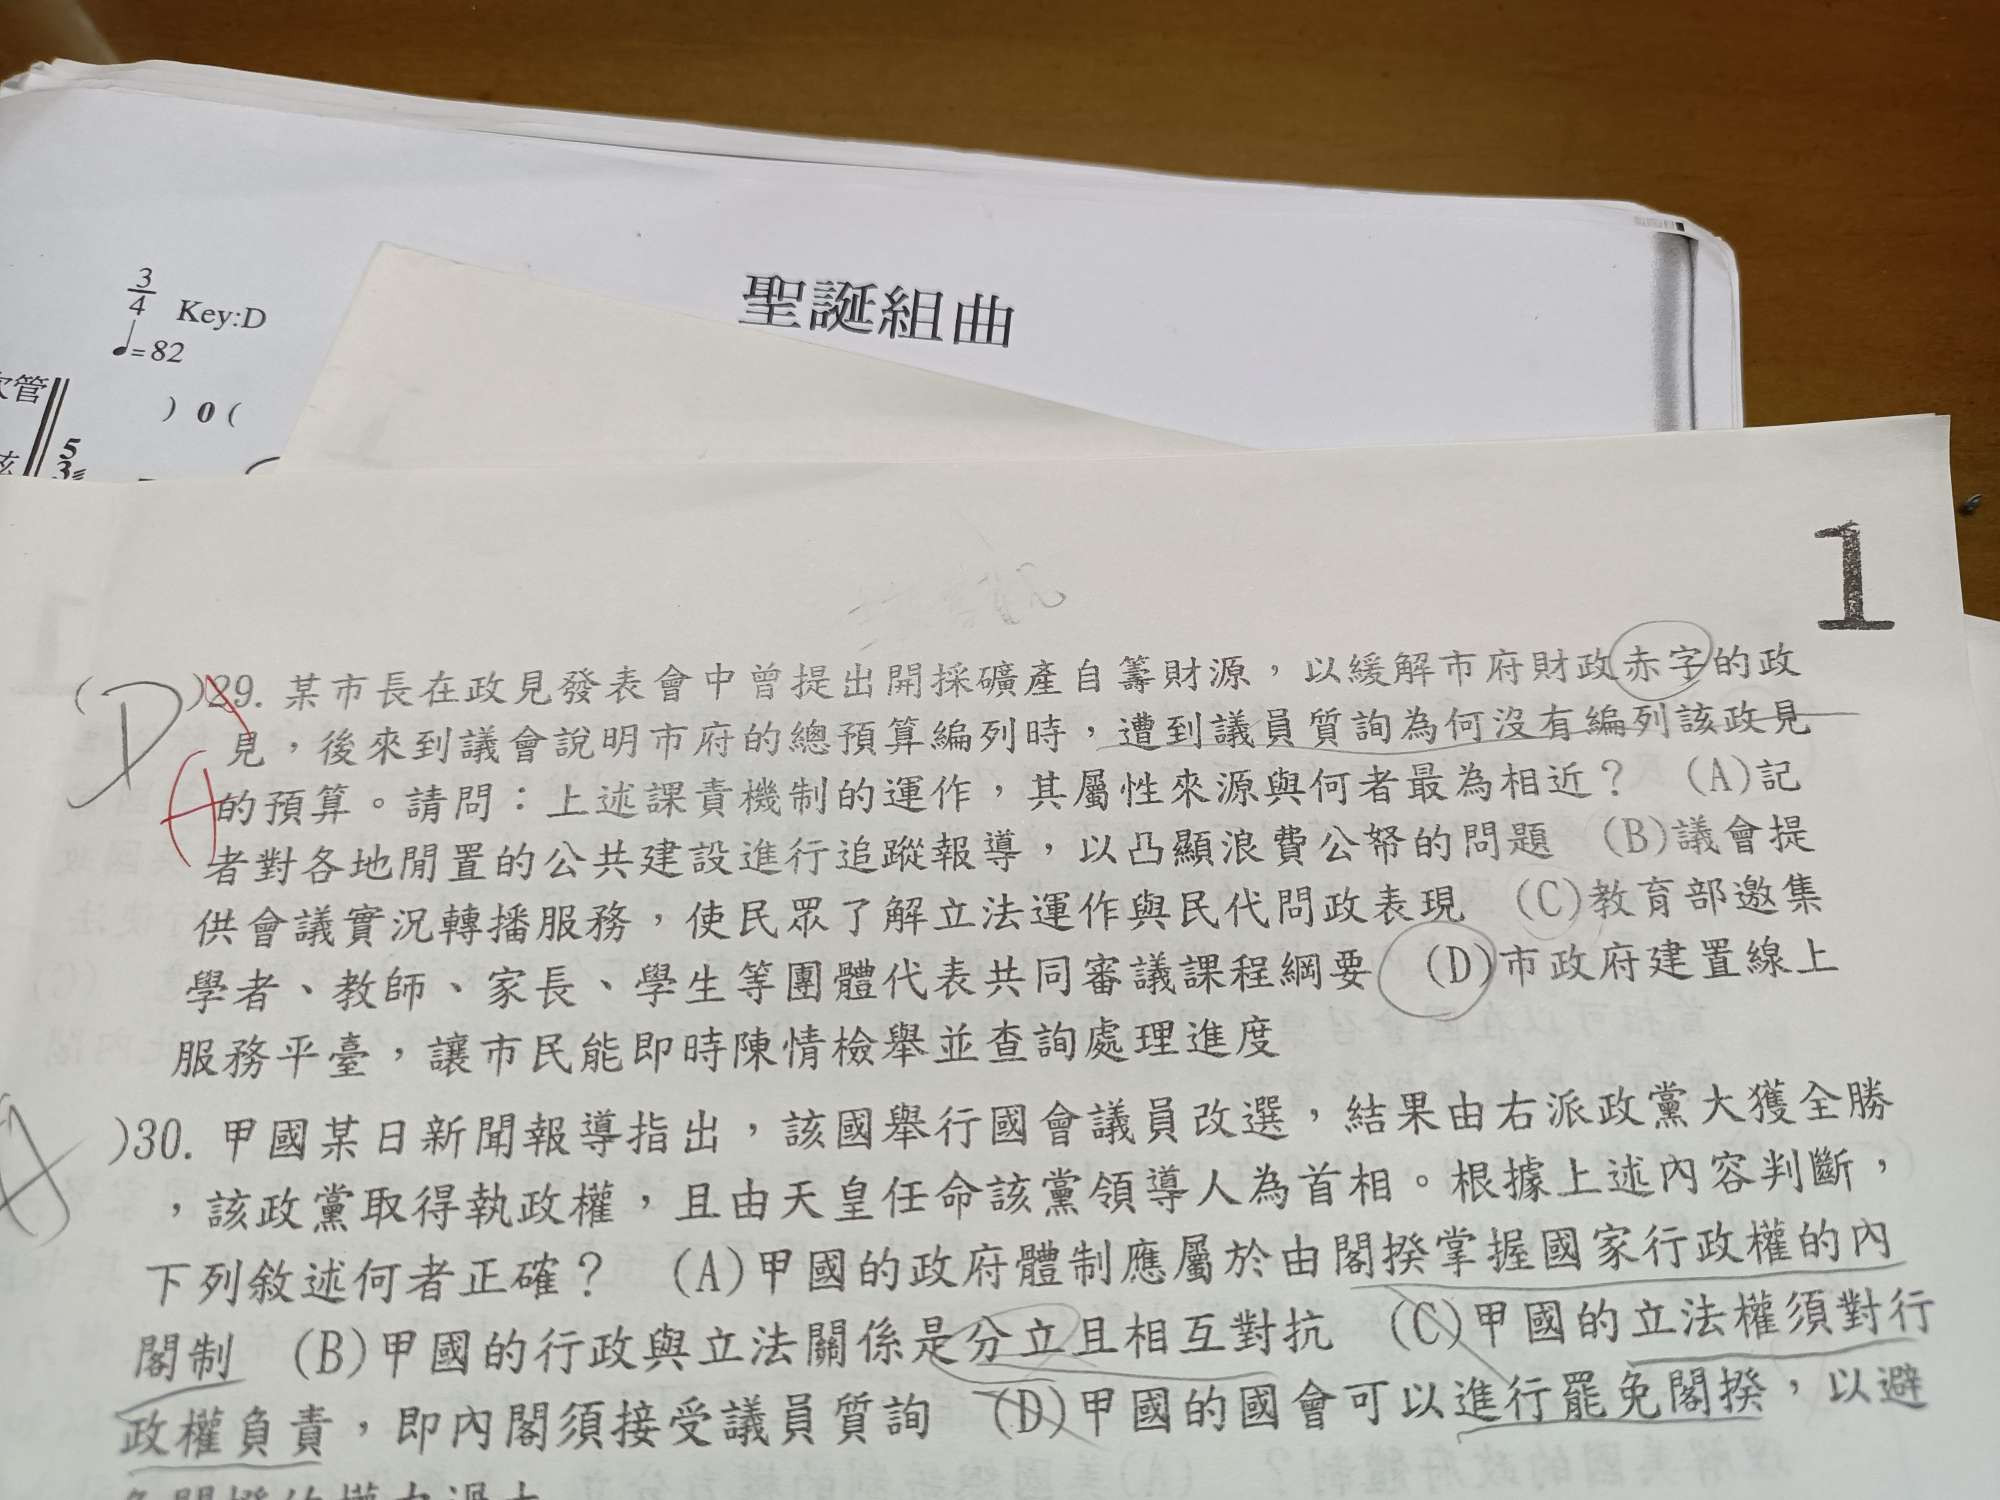 3/4 Key:D
聖誕組曲
♩=82
管
) 0 (
5
3
1
(D)29. 某市長在政見發表會中曾提出開採礦產自籌財源，以緩解市府財政赤字的政
見，後來到議會說明市府的總預算編列時，遭到議員質詢為何沒有編列該政見
A
的預算。請問：上述課責機制的運作，其屬性來源與何者最為相近？ (A)記
者對各地閒置的公共建設進行追蹤報導，以凸顯浪費公帑的問題 (B)議會提
供會議實況轉播服務，使民眾了解立法運作與民代問政表現 (C)教育部邀集
學者、教師、家長、學生等團體代表共同審議課程綱要 (D)市政府建置線上
服務平臺，讓市民能即時陳情檢舉並查詢處理進度
A )30. 甲國某日新聞報導指出，該國舉行國會議員改選，結果由右派政黨大獲全勝
，該政黨取得執政權，且由天皇任命該黨領導人為首相。根據上述內容判斷，
下列敘述何者正確？ (A)甲國的政府體制應屬於由閣揆掌握國家行政權的內
閣制 (B)甲國的行政與立法關係是分立且相互對抗 (C)甲國的立法權須對行
政權負責，即內閣須接受議員質詢 (D)甲國的國會可以進行罷免閣揆，以避
免閣揆的權力過大